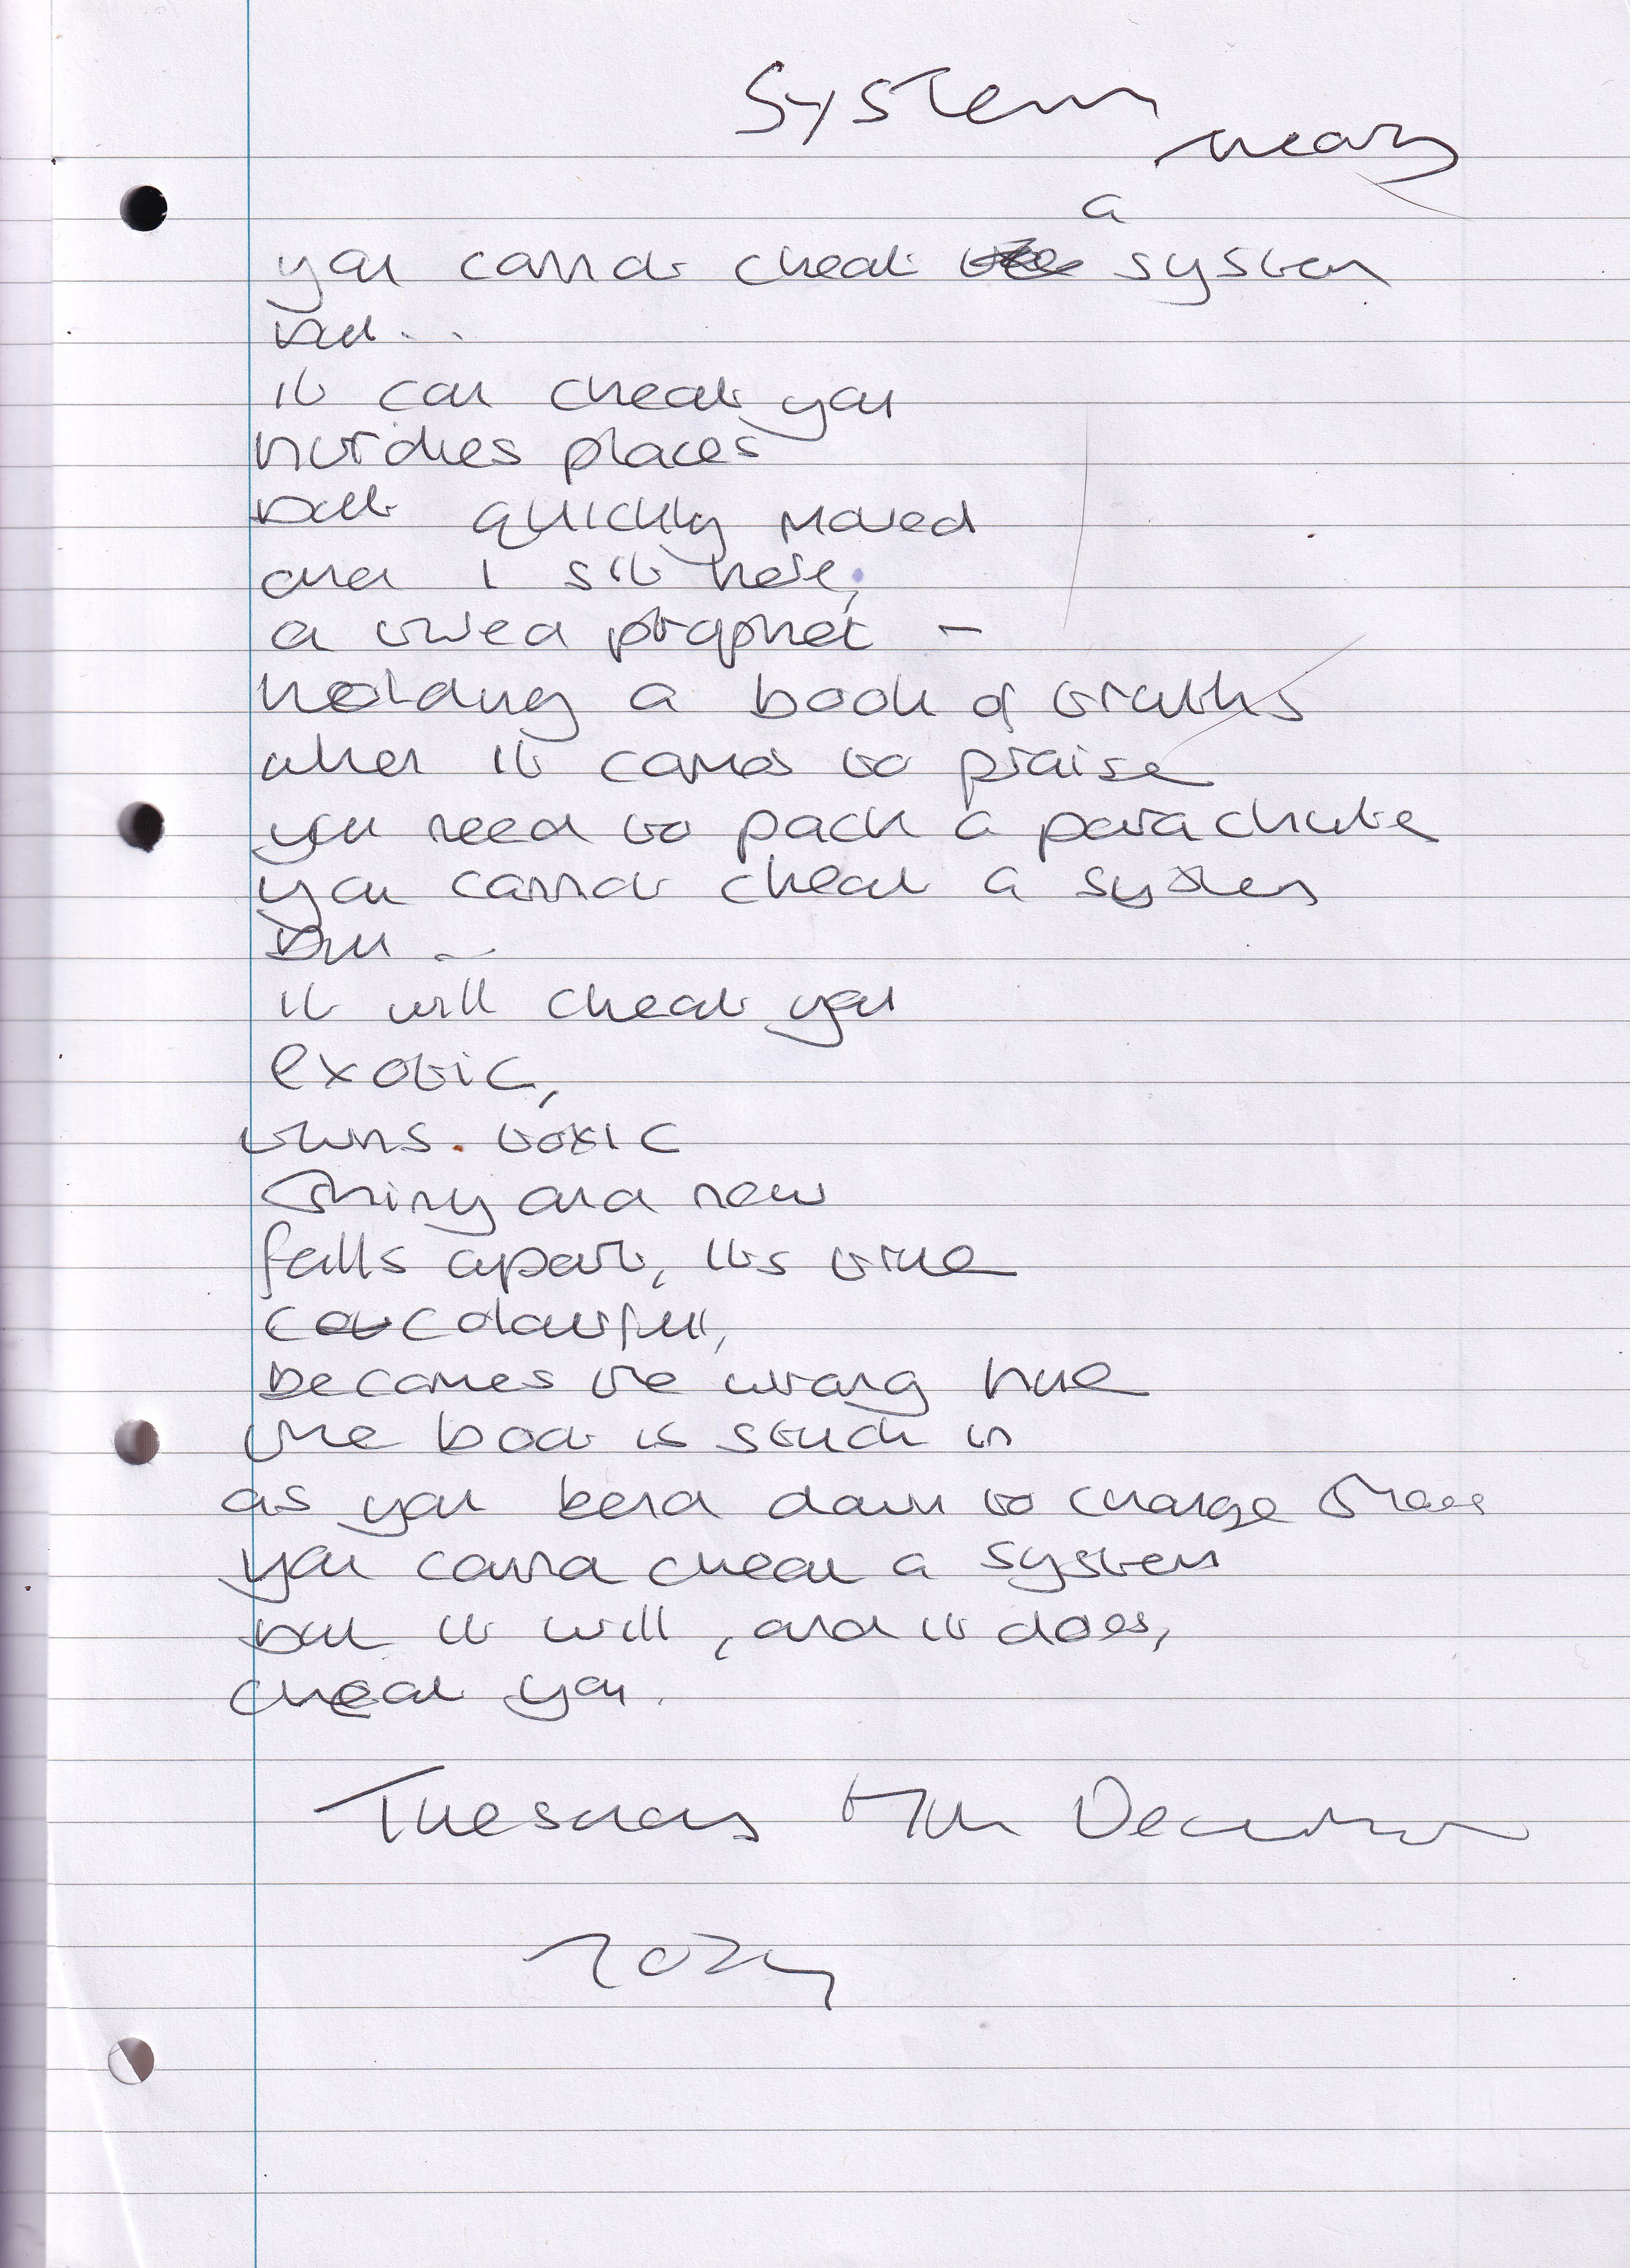 System
weary
a
you cannot cheat system
but...
it can cheat you
hurdles places
but quickly moved
and I sit here,
a tired prophet -
holding a book of truths
when it comes to praise
you need to pack a parachute
you cannot cheat a system
but..
it will cheat you
exotic,
turns toxic
shiny and new
falls apart, its true
colourful,
becomes the wrong hue
the boot is stuck in
as you bend down to change
you cannot cheat a system
but it will, and it does,
cheat you.
Tuesday 17th December
2024